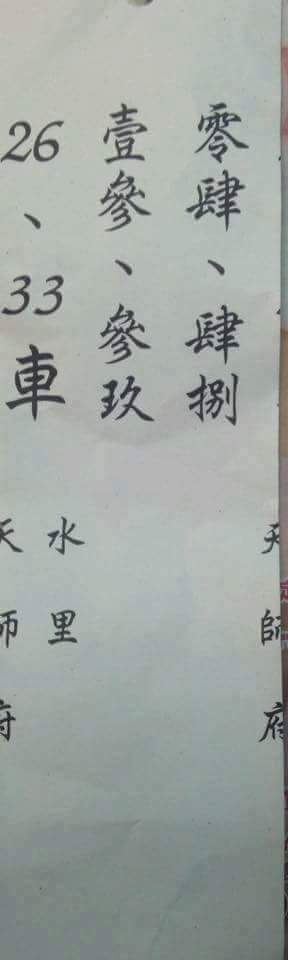 天師府
零肆、肆捌
壹參、參玖
26、33車
水里
天師府